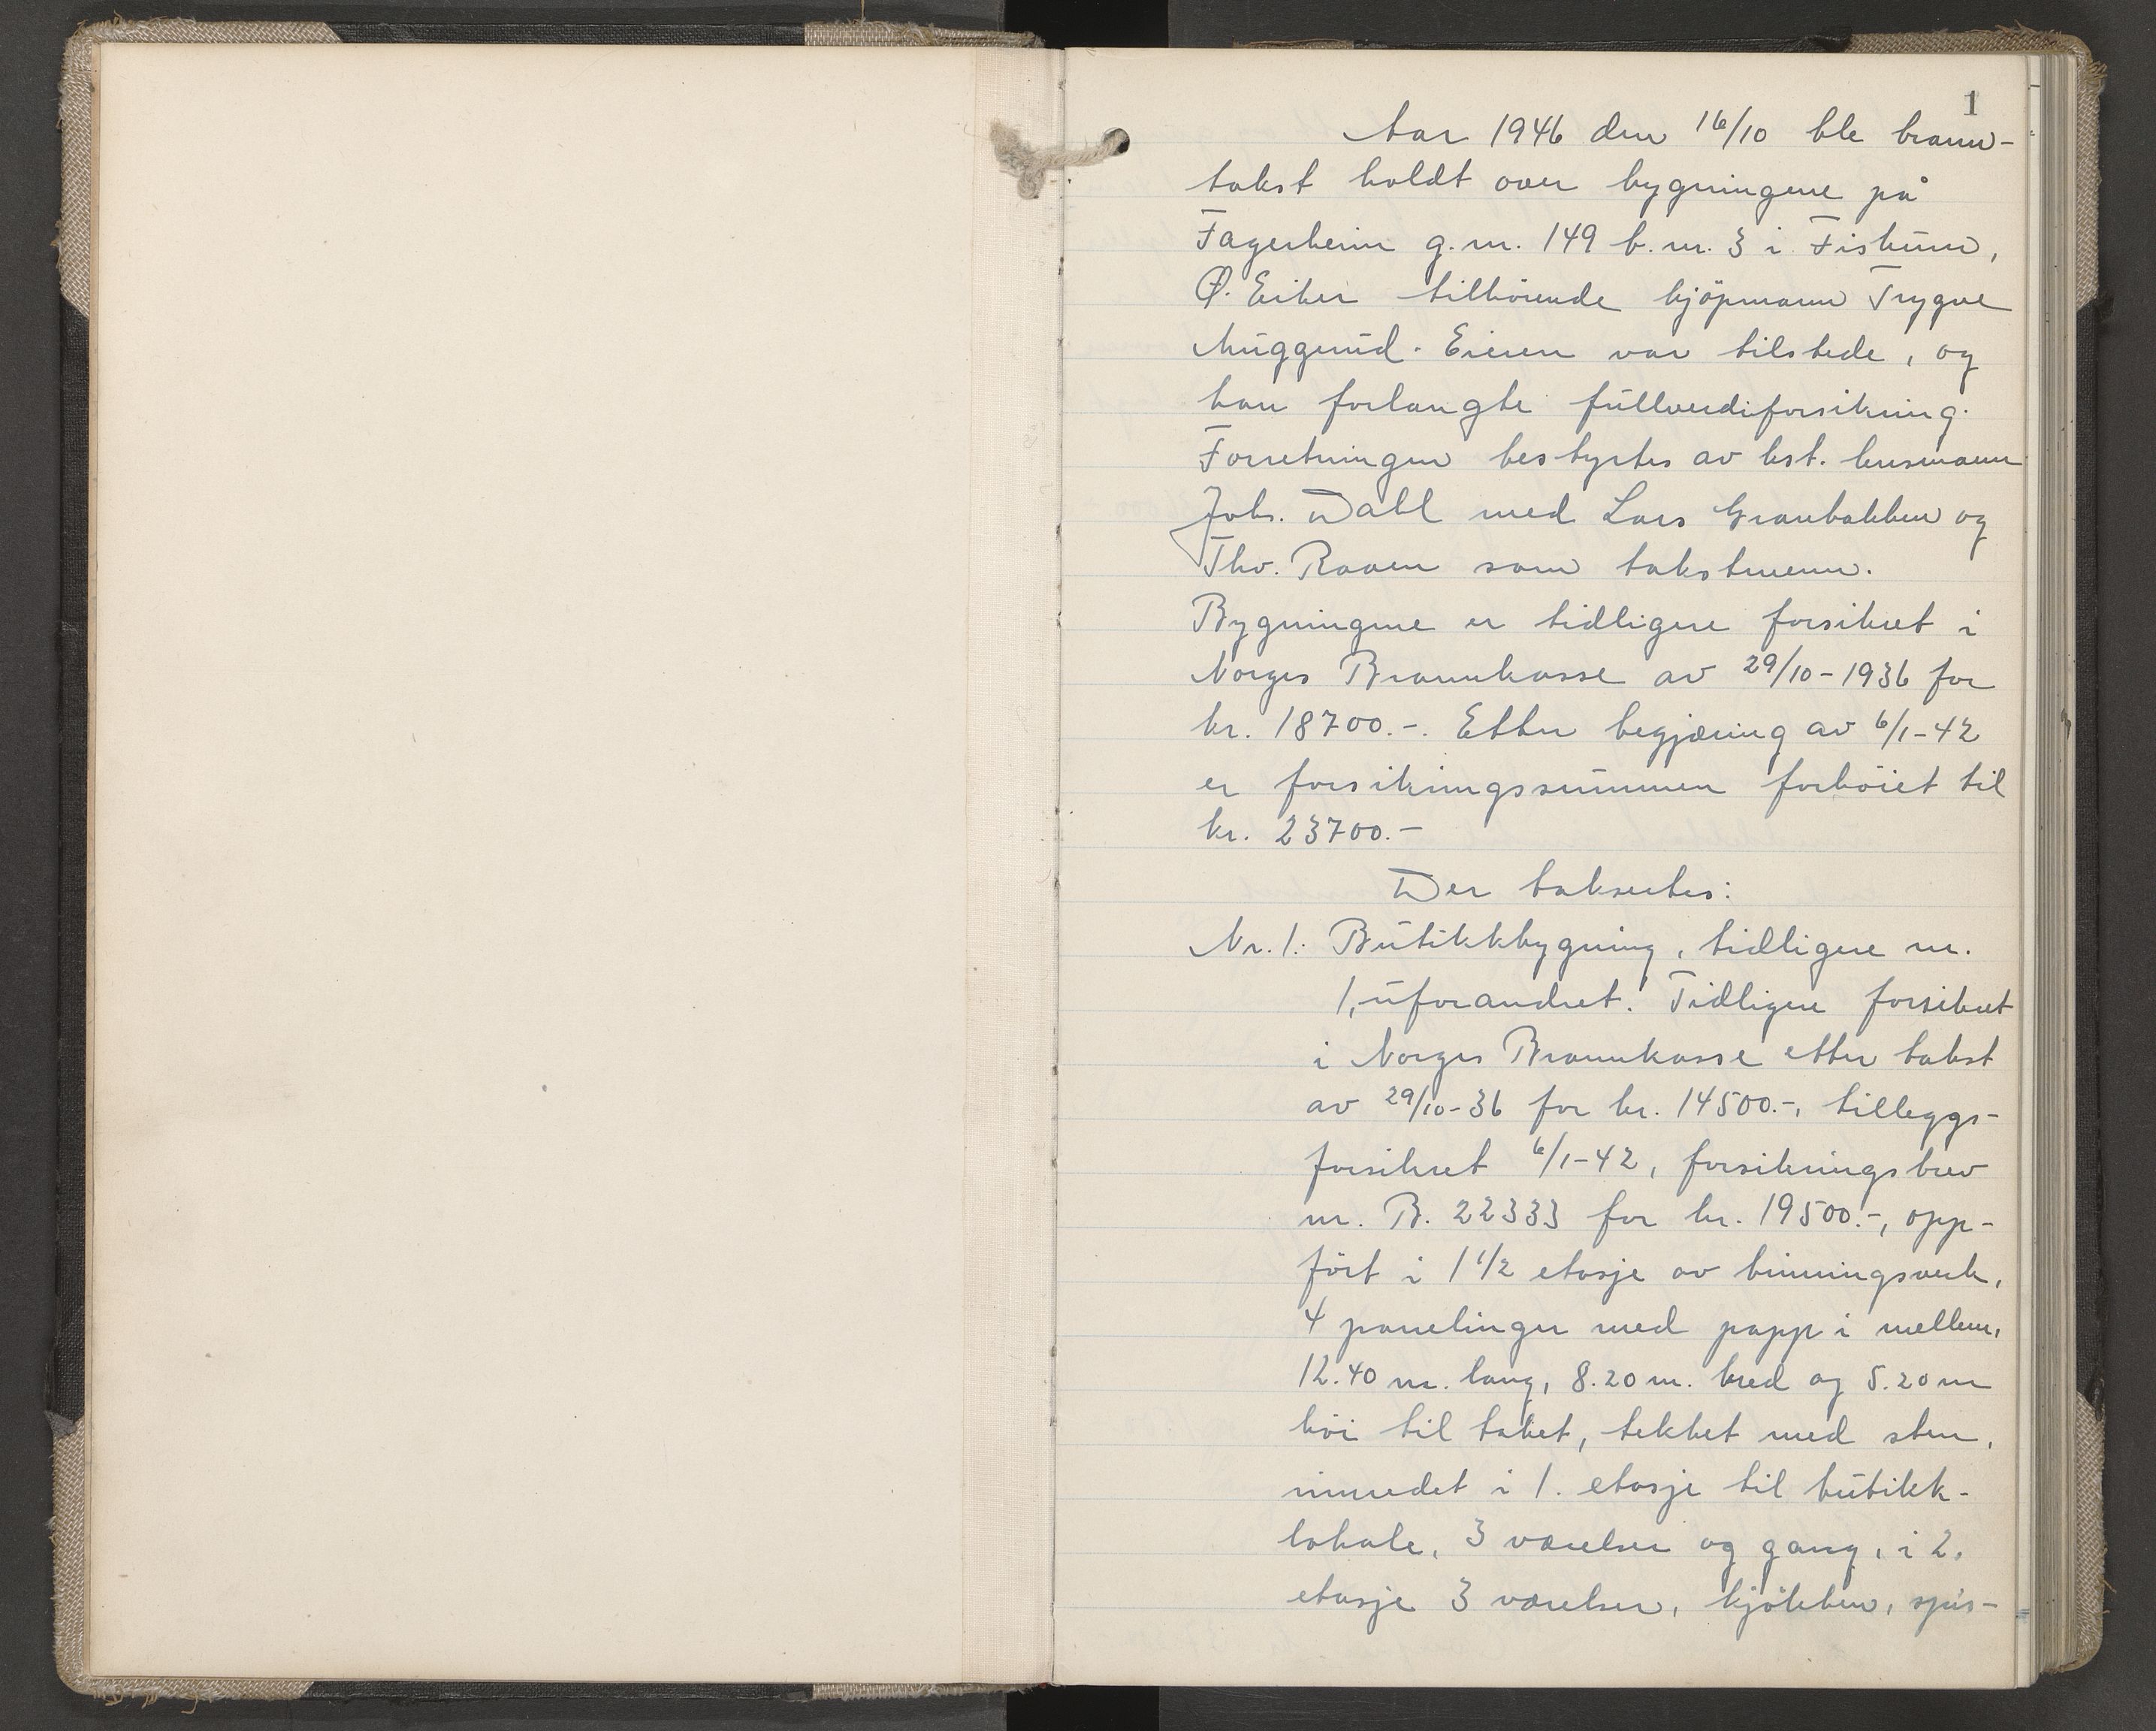 1
Aar 1946 den 16/10 ble brann-
takst holdt over bygningene på
Fagerheim g.nr. 149 b.nr. 3 i Fiskum,
Ø. Eiker tilhörende kjöpmann Trygve
Muggerud. Eieren var tilstede, og
han forlangte fullverdiforsikring.
Forretningen bestyrtes av kst. lensmann
Johs. Dahl med Lars Granbakken og
Thv. Raaen som takstmenn.
Bygningene er tidligere forsikret i
Norges Brannkasse av 29/10-1936 for
kr. 18700.-. Etter begjæring av 6/1-42
er forsikringssummen forhöiet til
kr. 23700.-
Der taksertes:
Nr. 1: Butikkbygning, tidligere nr.
1, uforandret. Tidligere forsikret
i Norges Brannkasse etter takst
av 29/10-36 for kr. 14500.-, tilleggs-
forsikret 6/1-42, forsikringsbrev
nr. B. 22333 for kr. 19500.-, opp-
fört i 1 1/2 etasje av binningsverk,
4 panelinger med papp i mellem,
12.40 m. lang, 8.20 m. bred og 5.20 m
höi til taket, tekket med sten,
innredet i 1. etasje til butikk-
lokale, 3 værelser og gang, i 2.
etasje 3 værelser, kjökken, spis-